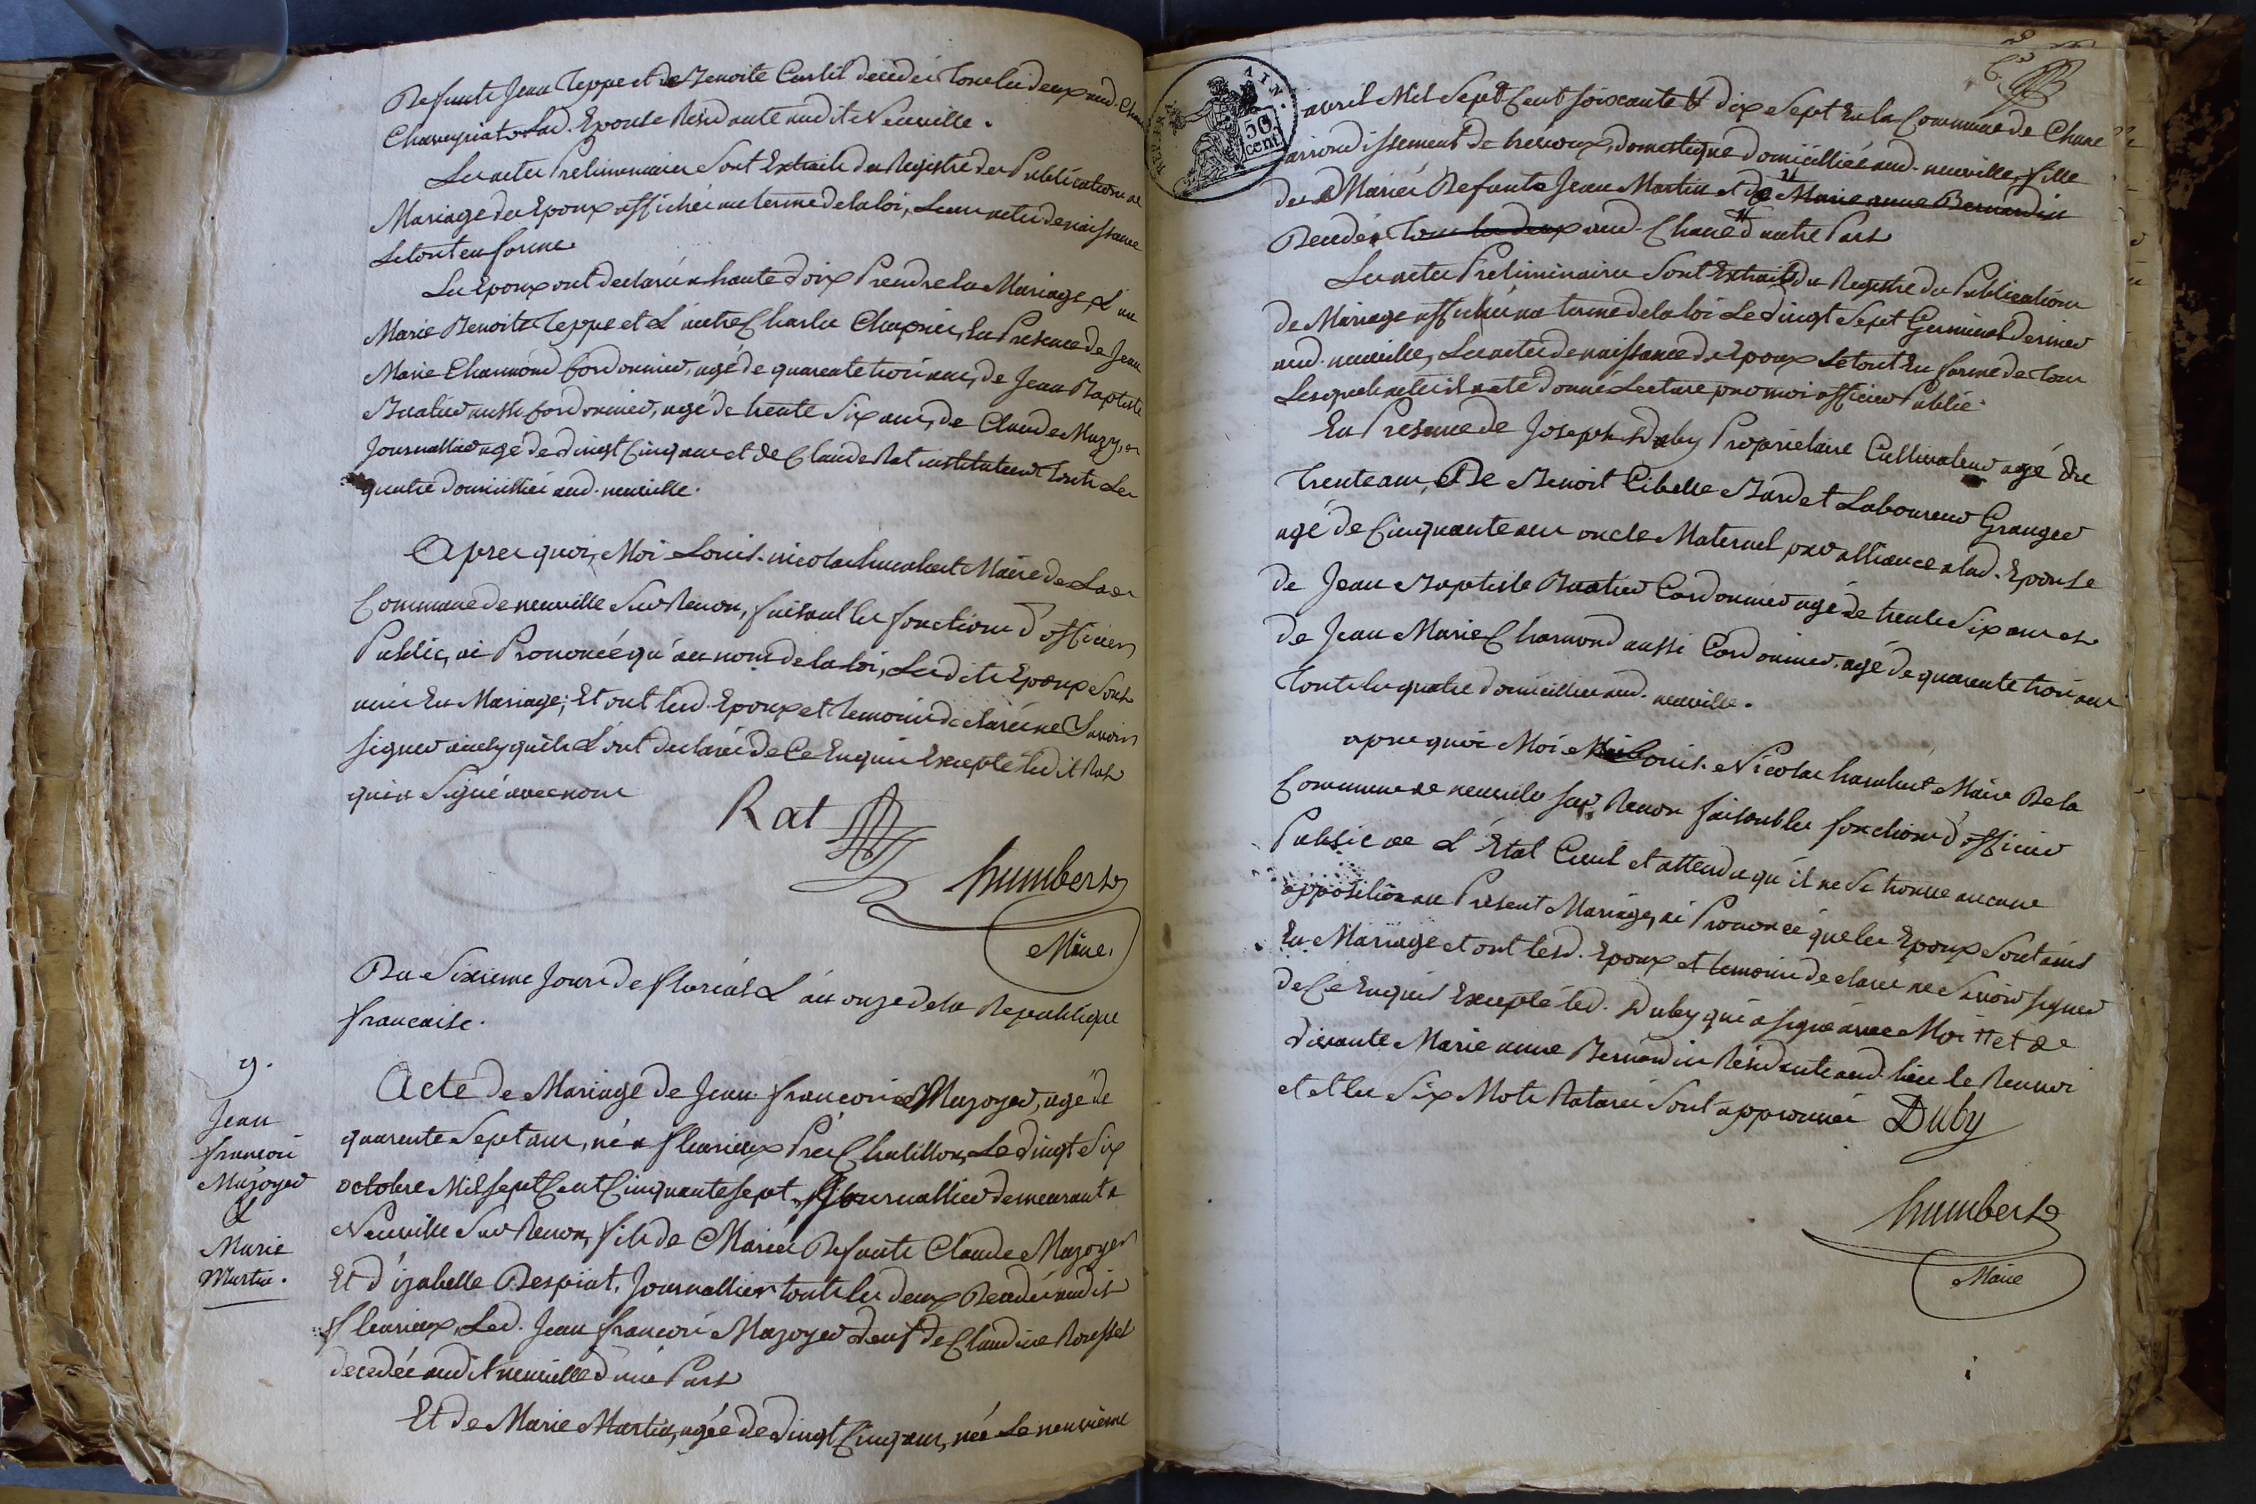 Defunts Jean Teppe et de Benoite Curtil décédés tous les deux aud. Chav
Chaveyriat Lad. Epouse Residante audit Neuville.
Les actes Preliminaires Sont Extraits du Registre des Publications de
Mariage des Epoux affichés au terme de la loi, Leurs actes de naissance
Le tout en forme
Les Epoux ont declaré a haute voix Prendre en Mariage, L'un
Marie Benoite Teppe et L'autre Charles Chapuis, En Presence de Jean
Marie Charmond Cordonnier, agé de quarente trois ans, de Jean Baptiste
Buatier aussi Cordonnier, agé de trente Six ans, de Claude Mazuy,
Journallier agé de vingt Cinq ans et de Claude Rat instituteur touts Les
quatre domicilliés aud. neuville.
Apres quoi, Moi Louis-nicolas humbert Maire de La
Commune de neuville Sur Renon, faisant les fonctions d'officier
Public, ai Prononcé qu'au nom de la loi, Lesdits Epoux Sont
unis En Mariage; Et ont lesd. Epoux et temoins declarés ne Savoir
signer ainsy qu'ils L'ont declarés de Ce Enquis Excepté ledit Rat
qui a Signé avec nous
Rat
humbert
Maire.
Du Sixieme Jour de floréal L'an onze de la Republique
francaise.
9.
Jean
francois
Mazoyer
&
Marie
Martin.
Acte de Mariage de Jean francois Mazoyer, agé de
quarente Sept ans, né a fleurieux Près Chatillon, Le vingt Six
octobre Mil sept Cent Cinquante sept, Journallier demeurant a
Neuville Sur Renon, fils de Mariés Defunts Claude Mazoyer
Et d'izabelle Despiat, Journalliers touts les deux Decedés audit
fleurieux, Led. Jean francois Mazoyer veuf de Claudine Rousset
decedée audit neuville d'une Part
Et de Marie Martin, agée de vingt Cinq ans, née Le neuvieme
avril Mil Sept Cent soixante & dix Sept En la Commune de Chane
arrondissement de trevoux, domestique domicilliée aud. neuville, fille
des Mariés Defunt Jean Martin et de Marie anne Bernardin
Decedés tous les deux aud. Chane d'autre Part
Les actes Preliminaires Sont Extraits du Registre des Publications
de Mariage affichés au terme de la loi Le vingt Sept Germinal dernier
aud. neuville, Les actes de naissance des Epoux Le tout En forme de tous
Lesquels actes il a eté donné Lecture par moi officier Public.
En Presence de Joseph Duby Proprietaire Cultivateur agé de
Trente ans, De Benoit Cibelle Bardet Laboureur Granger
agé de Cinquante ans oncle Maternel par alliance a lad. Epouse
de Jean Baptiste Buatier Cordonnier agé de trente Six ans et
de Jean Marie Charmond aussi Cordonnier, agé de quarente trois ans
Touts les quatre domicilliés aud. neuville.
apres quoi Moi Louis-Nicolas humbert Maire De la
Commune de neuville Sur Renon faisant les fonctions d'officier
Public de L'Etat Civil et attendu qu'il ne Se trouve aucune
opposition au Présent Mariage, ai Prononcé que les Epoux Sont unis
En Mariage et ont lesd. Epoux et temoins declarés ne Savoir signer
de Ce Enquis Excepté led. Duby qui a signé avec Moi # et de
vivante Marie anne Bernardin Residante aud. lieu le Renvoi
et les Six Mots Raturés Sont approuvés Duby
humbert
Maire
AIN.
50
cent